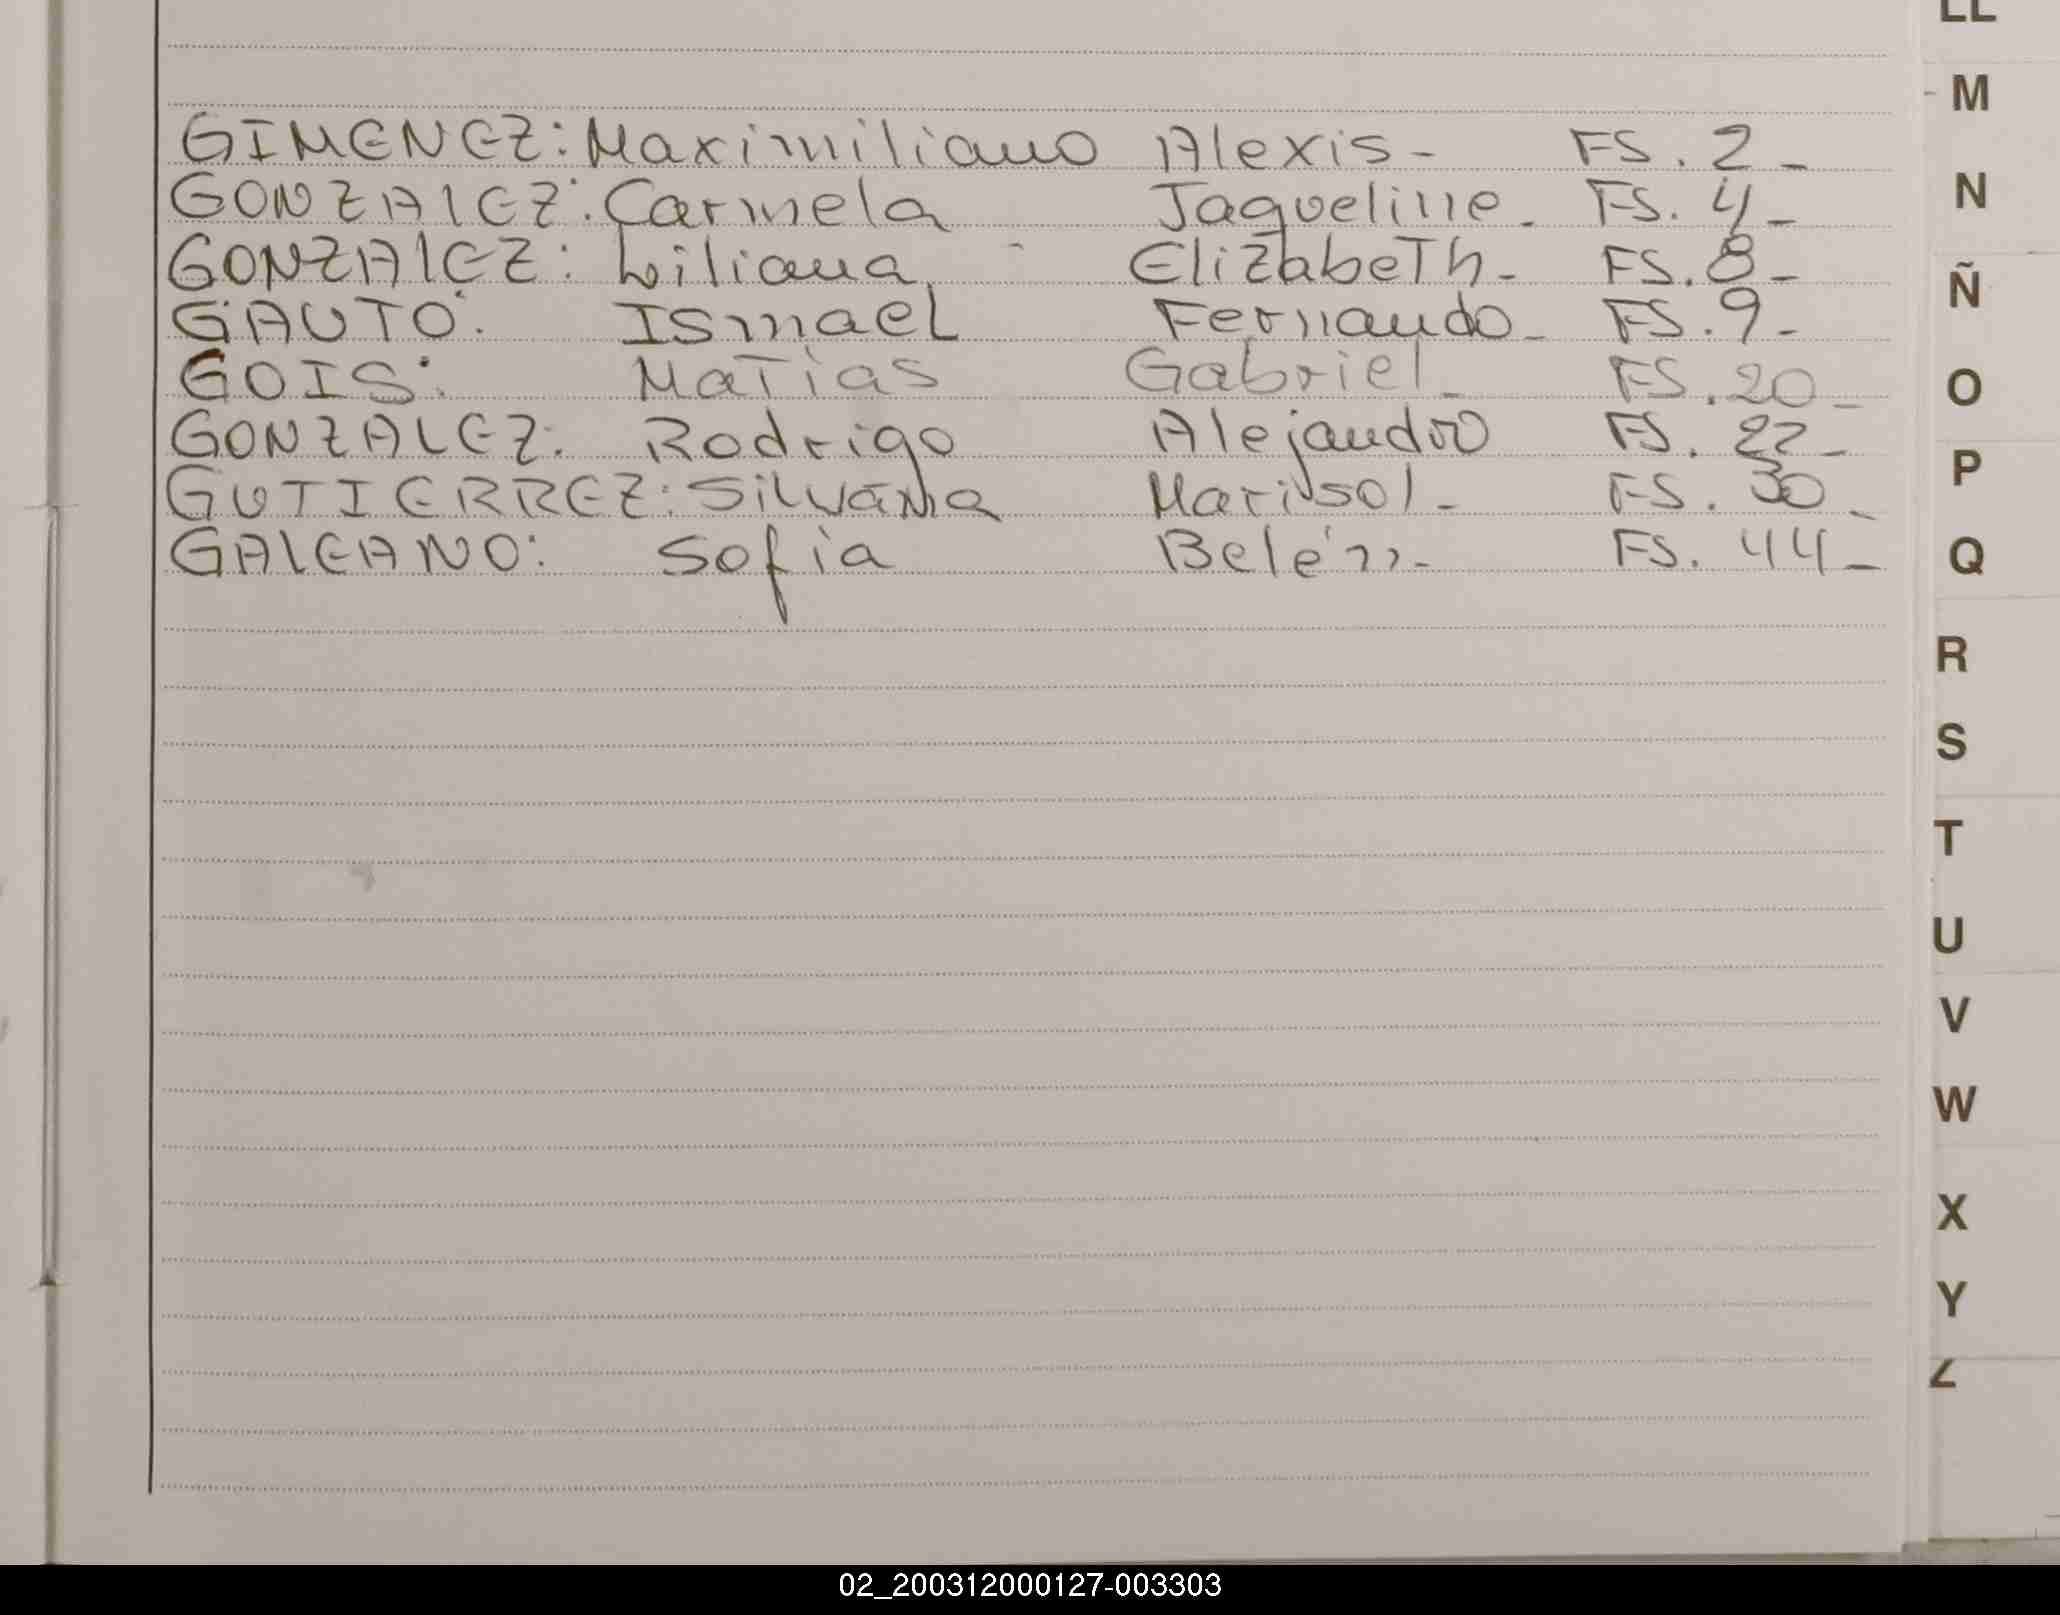 LL
GIMENEZ: Maximiliano Alexis- FS. 2-
M
GONZALEZ: Carmela Jaqueline- FS. 4-
N
GONZALEZ: Liliana Elizabeth- FS. 8-
Ñ
GAUTO: Ismael Fernando- FS. 9-
GOIS: Matias Gabriel- FS. 20-
O
GONZALEZ: Rodrigo Alejandro FS. 22-
P
GUTIERREZ: Silvana Marisol- FS. 30-
GALEANO: Sofia Belén- FS. 44-
Q
R
S
T
U
V
W
X
Y
Z
02_200312000127-003303